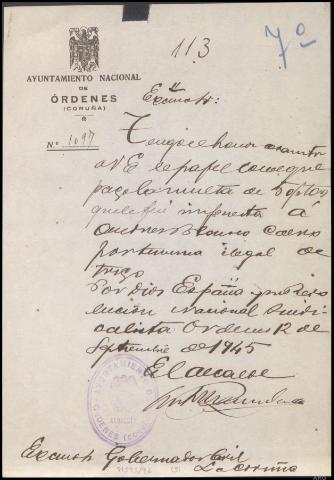 113
7º
AYUNTAMIENTO NACIONAL
DE
ÓRDENES
(CORUÑA)
N.º 1097
Excmo Sr:
Tengo el honor
a V E el papel con que
pago la multa de
que le fué impuesta á
por tenencia ilegal de
trigo
Por Dios España y su Revo
lución Nacional Sindi
calista Ordenes 12 de
Septiembre de 1945
El alcalde
AYUNTAMIENTO
ORDENES (CORUÑA)
ALCALDIA
Excmo Sr Gobernador Civil
La Coruña